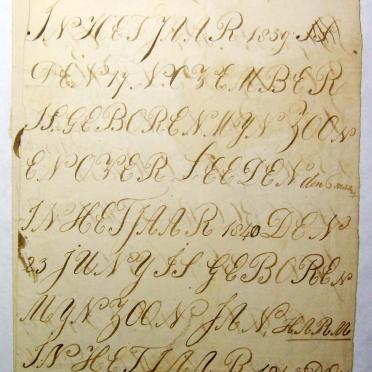 IN HET JAAR 1839 IN
DEN 17 NOVEMBER
IS GEBOREN MYN ZOON
EN OVER LEEDEN den
IN HET JAAR 1840 DEN
23 JUNY IS GEBOREN
MYN ZOON JAN, HARM
IN HET JAAR